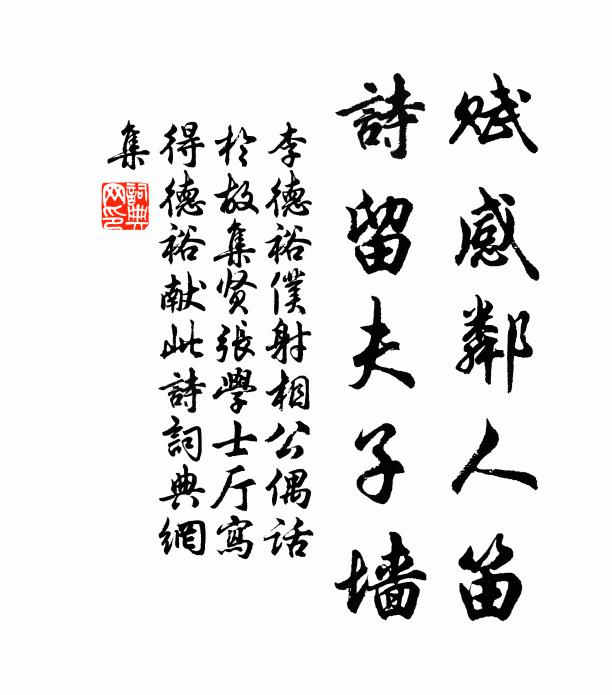 赋感鄰人笛
詩留夫子墙
李德裕僕射相公偶話
於故集贤張學士厅寫
得德裕献此詩詞典網
集
詞典
网印